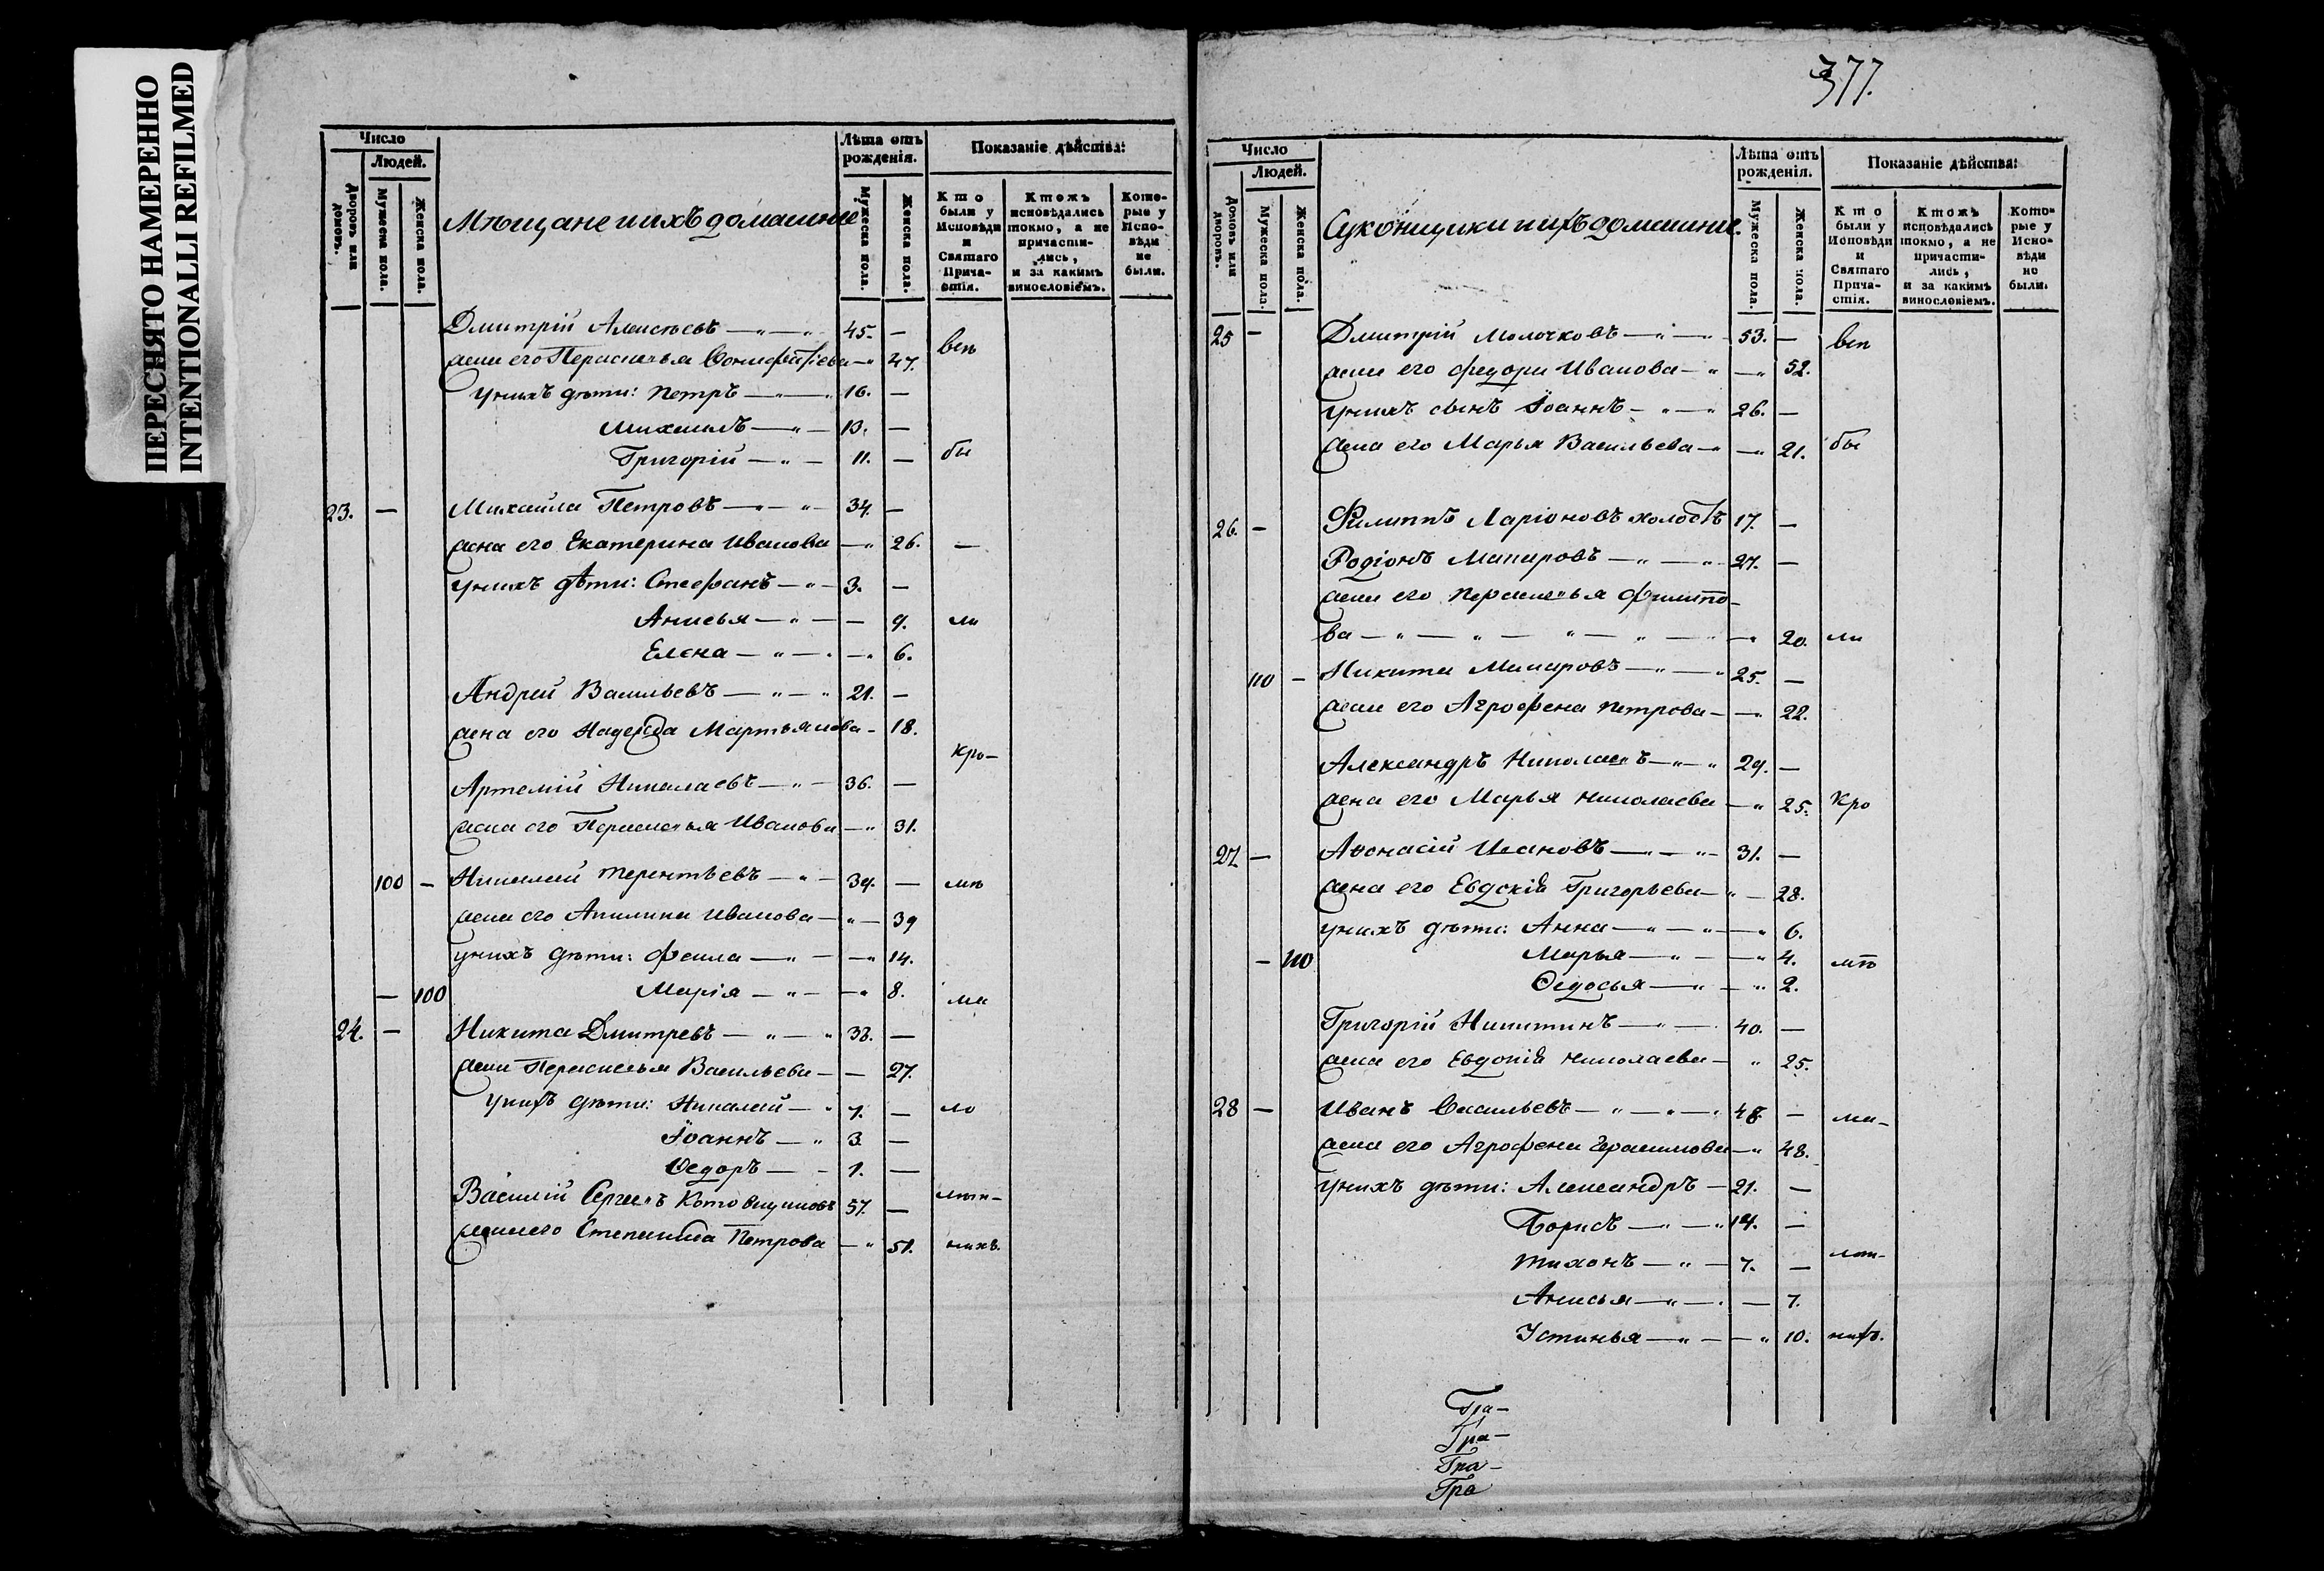 ПЕРЕСНЯТО НАМЕРЕННО
INTENTIONALLI REFILMED
Число
Людей.
Дворовъ или домовъ.
Мужеска пола.
Женска пола.
Мѣщане и ихъ домашние
Лѣта отъ рожденія.
Мужеска пола.
Женска пола.
Показаніе дѣйства:
Кто были у Исповѣди и Святаго Прича-стія.
Ктожъ исповѣдались токмо, а не причасти-лись, и за какимъ винословіемъ.
Кото-рые у Испо-вѣди не были.
Дмитрій Алексѣевъ — 45. — всѣ
жена его Параскевья — 47.
у нихъ дѣти: Петръ — 16. —
Михаилъ — 13. —
Григорій — 11. — бы
23. — Михайла Петровъ — 34. —
жена его Екатерина Иванова — 26. —
у нихъ дѣти: Стефанъ — 3. —
Анисья — 9. ли
Елена — 6.
Андрей Васильевъ — 21. —
жена его Надежда Мартьянова — 18.
кро-
Артемій Николаевъ — 36. —
жена его Параскевья Иванова — 31.
100 — Николай Терентьевъ — 39. — мѣ
жена его Акилина Иванова — 39
у нихъ дѣти: Фекла — 14.
— 100 Марія — 8. ма
24. — Никита Дмитревъ — 38. —
жена Параскевья Васильева — 27.
у нихъ дѣти: Николай — 7. — ло
Іоаннъ — 3. —
Ѳедоръ — 1. —
Василій Сергеевъ 57. — лѣт-
жена его Степанида Петрова — 51. нихъ.
377.
Число
Людей.
Домовъ или дворовъ.
Мужеска пола.
Женска пола.
Суконщики и ихъ домашние.
Лѣта отъ рожденія.
Мужеска пола.
Женска пола.
Показаніе дѣйства:
Кто были у Исповѣди и Святаго Прича-стія.
Ктожъ исповѣдались токмо, а не причасти-лись, и за какимъ винословіемъ.
Кото-рые у Испо-вѣди не были.
25 — Дмитрій Молочковъ — 53. — всѣ
жена его Федора Иванова — 52.
у нихъ сынъ Іоаннъ — 26. —
жена его Марья Васильева — 21. бы
26. — Филиппъ Ларіоновъ холостъ 17. —
Родіонъ Макаровъ — 27. —
жена его Параскевья Филипо-
ва — 20. ли
110 — Никита Макаровъ — 25. —
жена его Агрофена Петрова — 22.
Александръ Николаевъ — 29. —
жена его Марья Николаева — 25. кро
27. — Аѳонасій Ивановъ — 31. —
жена его Евдокія Григорьева — 28.
у нихъ дѣти: Анна — 6.
— 110 Марья — 4. мѣ
Ѳедосья — 2.
Григорій Никитинъ — 40. —
жена его Евдокія Николаева — 25.
28 — Иванъ Васильевъ — 48 — ма-
жена его Агрофена Герасимова — 48.
у нихъ дѣти: Александръ — 21. —
Борисъ — 14. —
Тихонъ — 7. — лѣт-
Анисья — 7.
Устинья — 10. нихъ.
Гра-
Гра-
Гра-
Гра